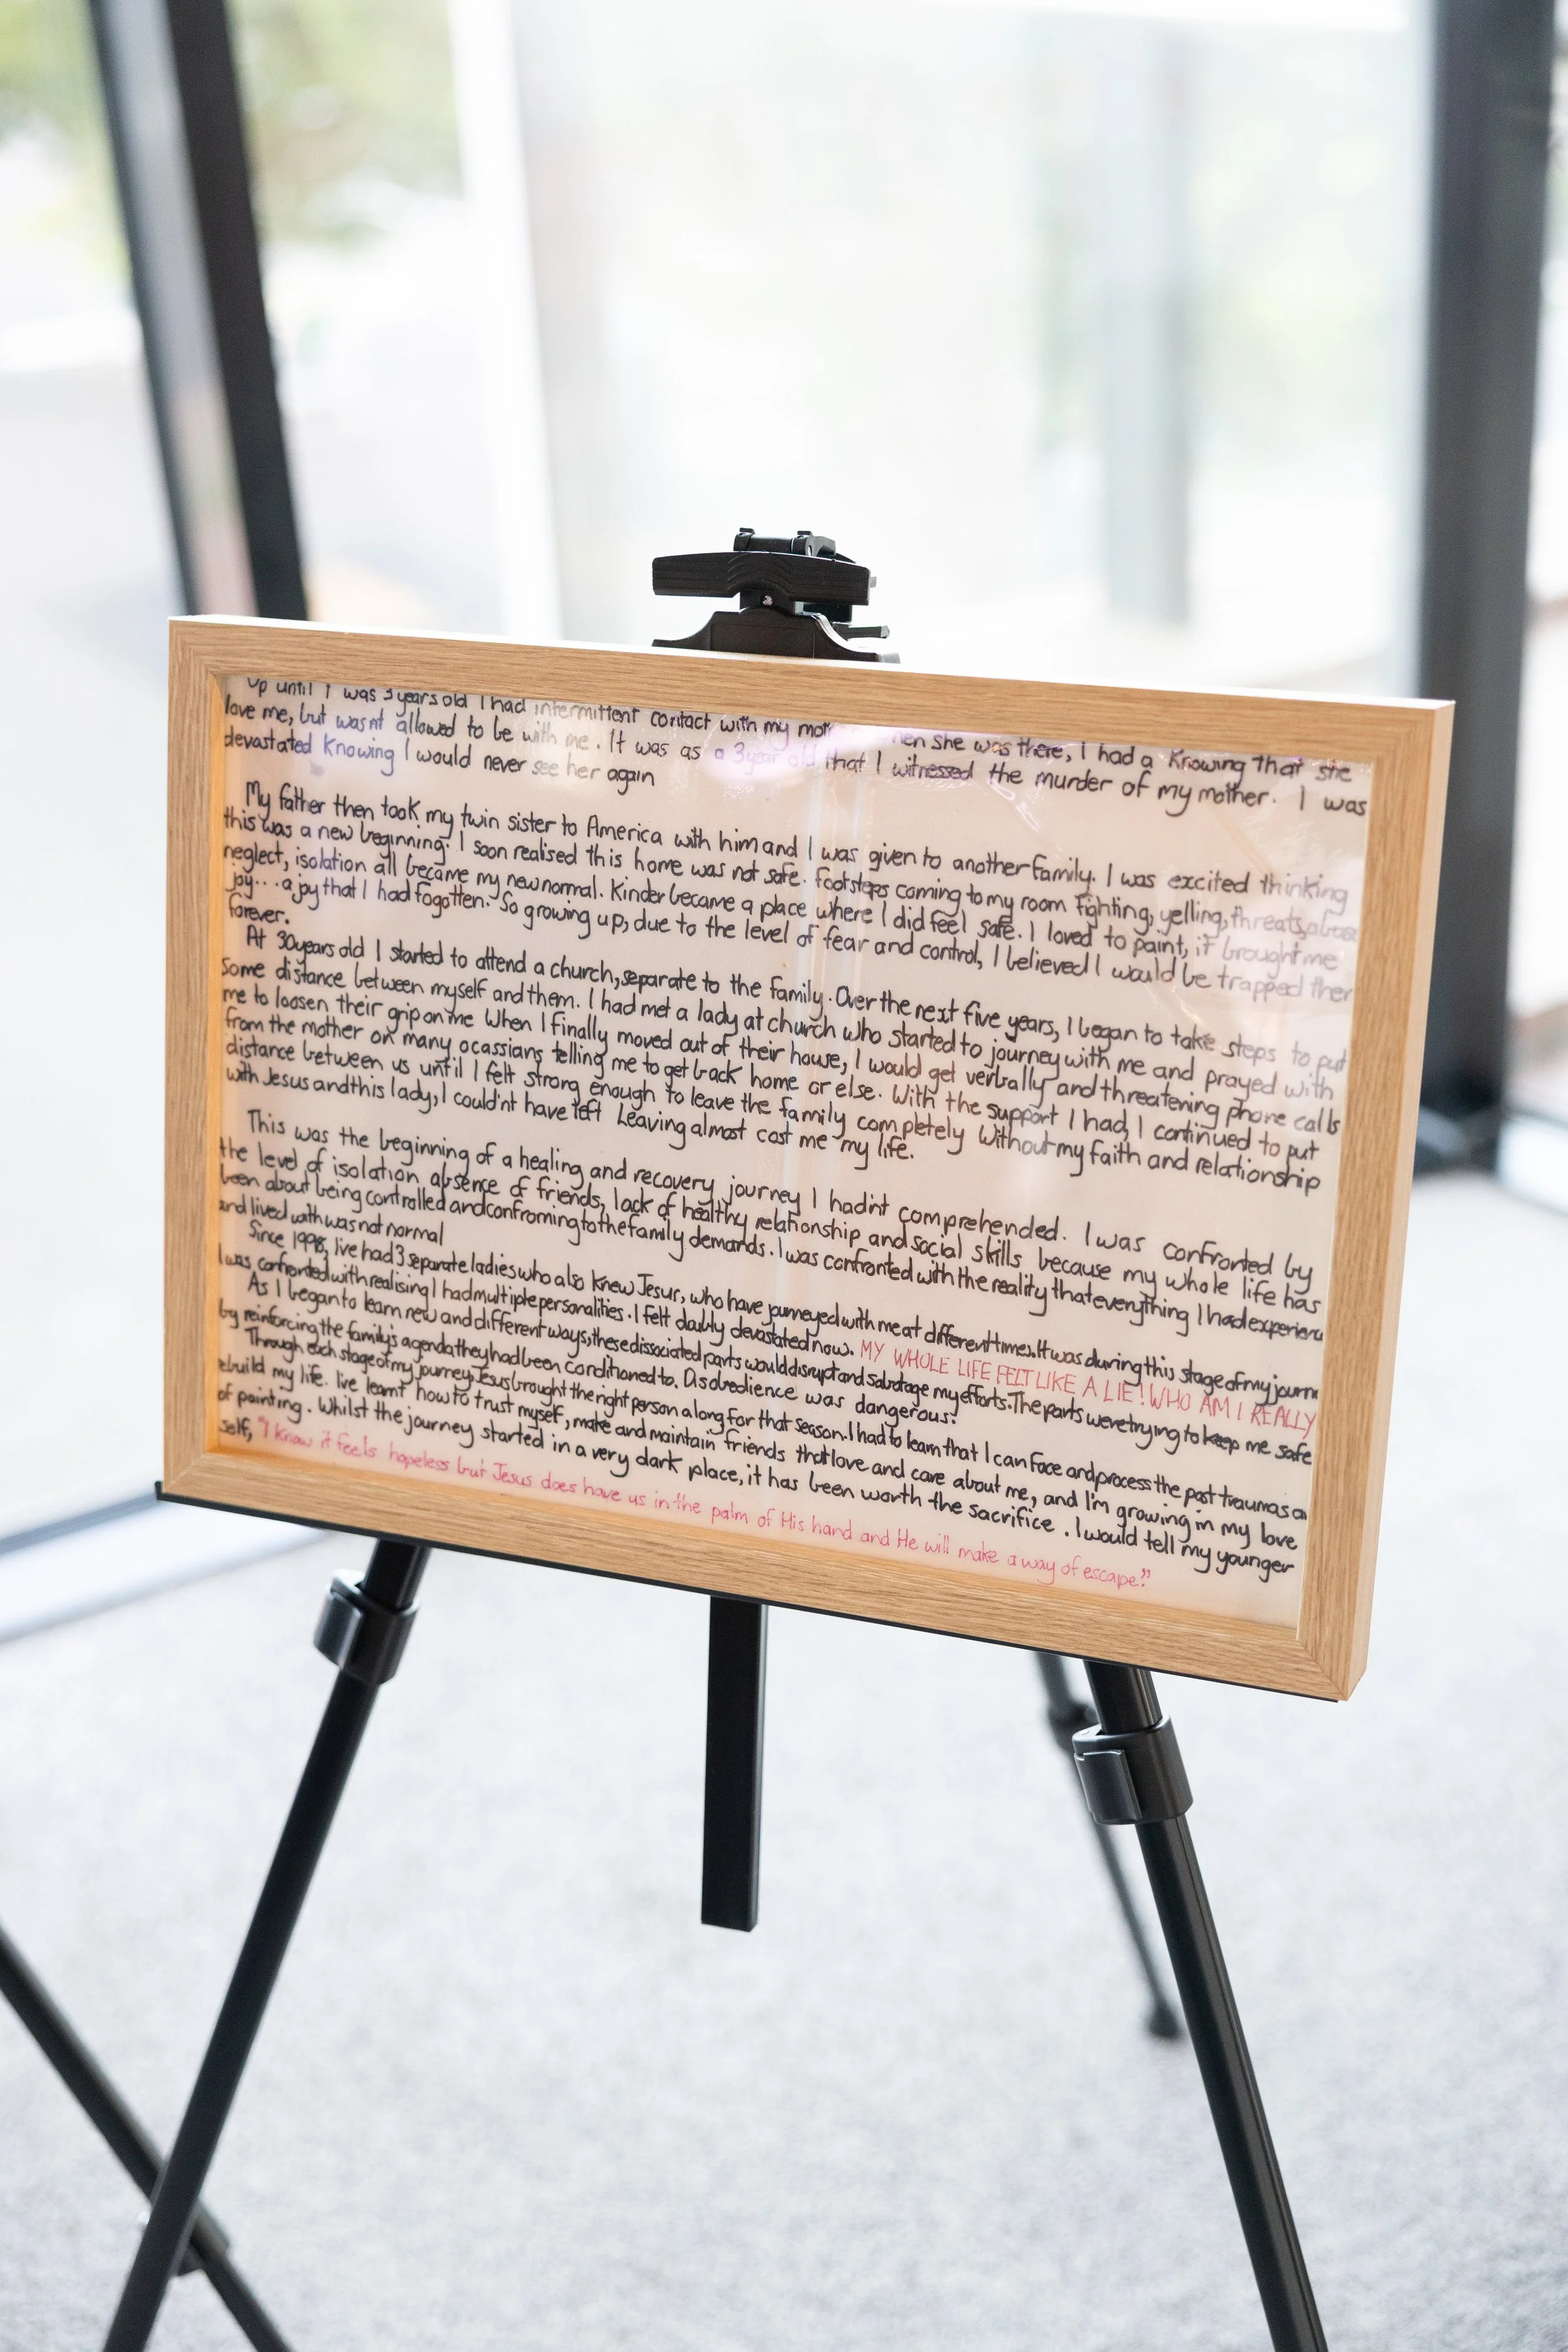 Up until I was 3 years old I had intermittent contact with my hen she was there, I had a knowing that she
love me, but wasnt allowed to be with me. It was as a 3 year old that I witnessed the murder of my mother. I was
devastated knowing I would never see her again
My father then took my twin sister to America with him and I was given to another family. I was excited thinking
this was a new beginning. I soon realised this home was not safe. Footsteps coming to my room fighting, yelling, threats,
neglect, isolation all became my new normal. Kinder became a place where I did feel safe. I loved to paint, it brought me
joy... a joy that I had fogotten. So growing up, due to the level of fear and control, I believed I would be trapped ther
forever.
At 30 years old I started to attend a church, separate to the family. Over the next five years, I began to take steps to put
some distance between myself and them. I had met a lady at church who started to journey with me and prayed with
me to loosen their grip on me When I finally moved out of their house, I would get verbally and threatening phone calls
from the mother on many ocassians telling me to get back home or else. With the support I had, I continued to put
distance between us until I felt strong enough to leave the family completely Without my faith and relationship
with Jesus and this lady, I could'nt have left Leaving almost cost me my life.
This was the beginning of a healing and recovery journey I had'nt comprehended. I was confronted by
the level of isolation, absence of friends, lack of healthy relationship and social skills because my whole life has
been about being controlled and confroming to the family demands. I was confronted with the reality that everything I had experienc
and lived with was not normal
Since 1998, Ive had 3 separate ladies who also knew Jesus, who have journeyed with me at different times. It was during this stage of my journ
I was confronted with realising I had multiple personalities. I felt doubly devastated now. MY WHOLE LIFE FELT LIKE A LIE! WHO AM I REALLY
As I began to learn new and different ways, these dissociated parts would disrupt and sabotage my efforts. The parts were trying to keep me safe
by reinforcing the family's agenda they had been conditioned to. Disobedience was dangerous.
Through each stage of my journey, Jesus brought the right person along for that season. I had to learn that I can face and process the past traumas a
ebuild my life. Ive learnt how to trust myself, make and maintain friends that love and care about me, and I'm growing in my love
of painting. Whilst the journey started in a very dark place, it has been worth the sacrifice. I would tell my younger
self, "I know it feels hopeless but Jesus does have us in the palm of His hand and He will make a way of escape."